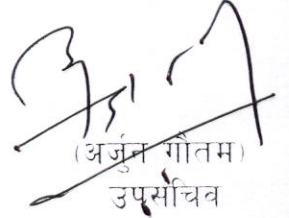 (अर्जुन गौतम)
उपसचिव